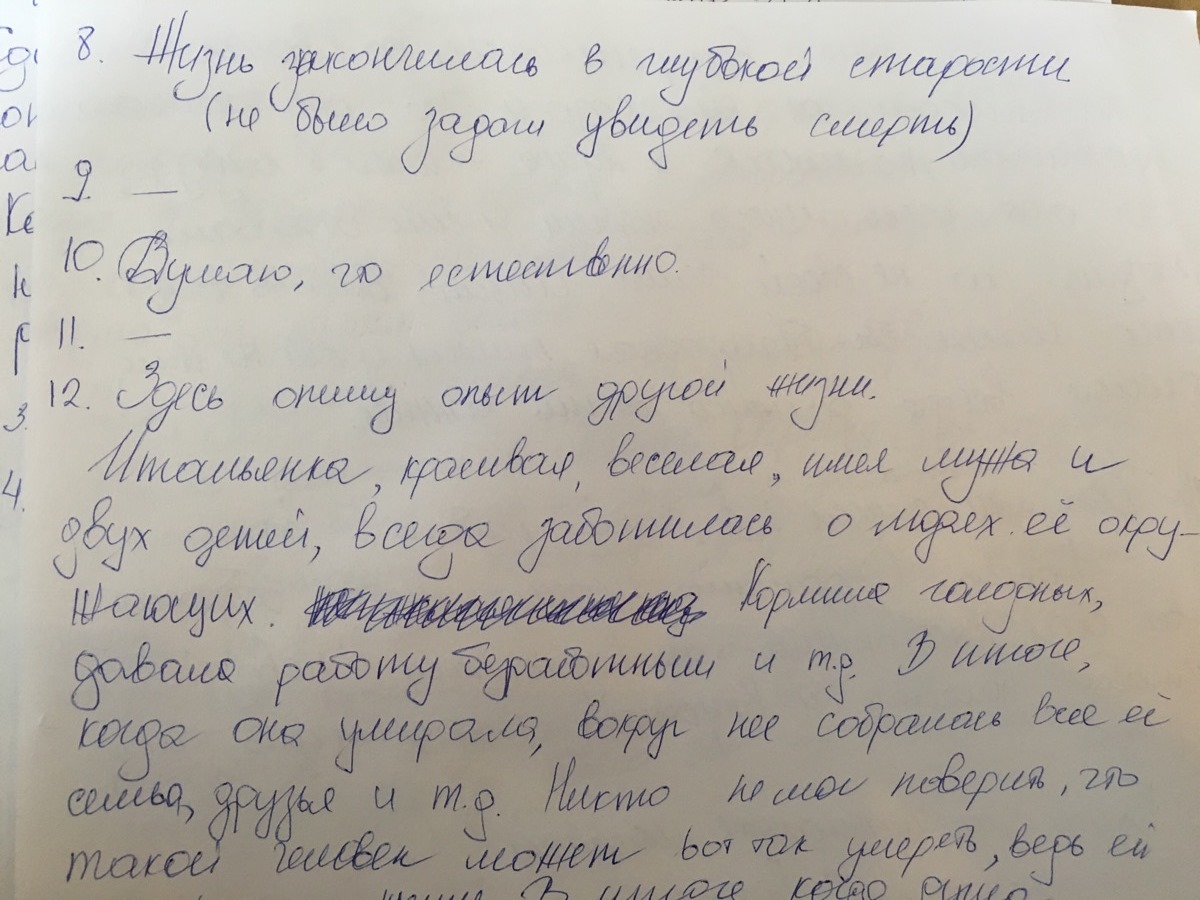 8. Жизнь закончилась в глубокой старости
(не было задачи увидеть смерть)
9. —
10. Думаю, что естественно.
11. —
12. Здесь опишу опыт другой жизни.
Итальянка, красивая, веселая, имея мужа и
двух детей, всегда заботилась о людях её окру-
жающих. Кормила голодных,
давала работу безработным и т.д. В итоге,
когда она умирала, вокруг нее собралась вся её
семья, друзья и т.д. Никто не мог поверить, что
такой человек может вот так умереть, ведь ей
В итоге когда
3.
4.